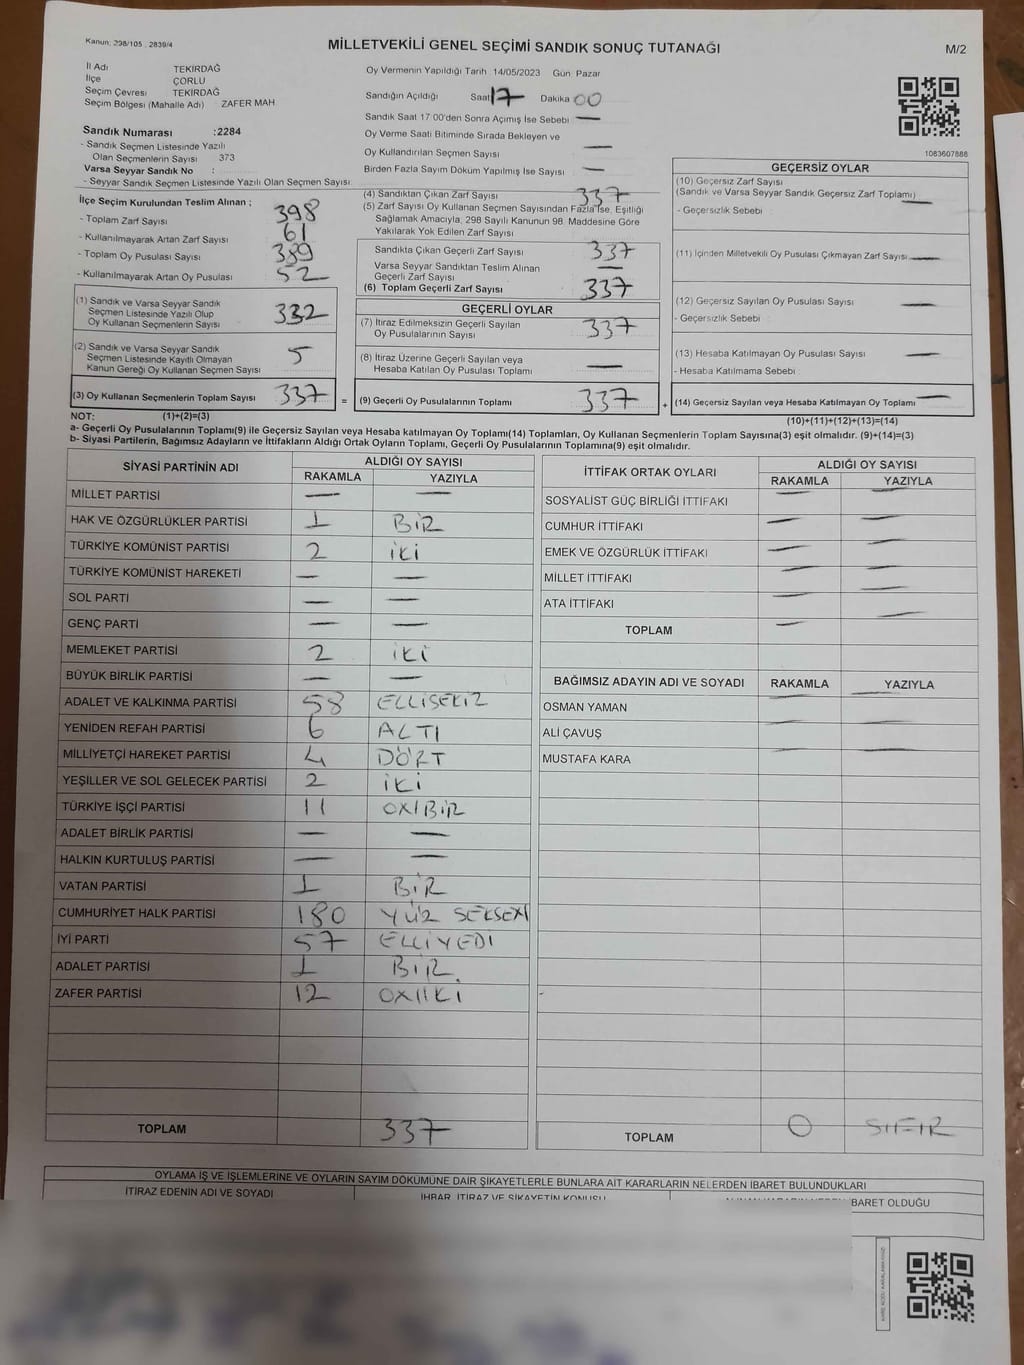 Kanun: 298/105 , 2839/4
MİLLETVEKİLİ GENEL SEÇİMİ SANDIK SONUÇ TUTANAĞI
M/2
İl Adı TEKİRDAĞ
İlçe ÇORLU
Seçim Çevresi TEKİRDAĞ
Seçim Bölgesi (Mahalle Adı) ZAFER MAH
Oy Vermenin Yapıldığı Tarih 14/05/2023 Gün: Pazar
Sandığın Açıldığı Saat 17 Dakika 00
Sandık Saat 17:00'den Sonra Açımış İse Sebebi —
Oy Verme Saati Bitiminde Sırada Bekleyen ve
Oy Kullandırılan Seçmen Sayısı —
Birden Fazla Sayım Döküm Yapılmış İse Sayısı —
1083607888
Sandık Numarası :2284
- Sandık Seçmen Listesinde Yazılı
Olan Seçmenlerin Sayısı 373
Varsa Seyyar Sandık No :
- Seyyar Sandık Seçmen Listesinde Yazılı Olan Seçmen Sayısı:
İlçe Seçim Kurulundan Teslim Alınan ;
- Toplam Zarf Sayısı 398
- Kullanılmayarak Artan Zarf Sayısı 61
- Toplam Oy Pusulası Sayısı 389
- Kullanılmayarak Artan Oy Pusulası 52
(1) Sandık ve Varsa Seyyar Sandık
Seçmen Listesinde Yazılı Olup
Oy Kullanan Seçmenlerin Sayısı 332
(2) Sandık ve Varsa Seyyar Sandık
Seçmen Listesinde Kayıtlı Olmayan
Kanun Gereği Oy Kullanan Seçmen Sayısı 5
(3) Oy Kullanan Seçmenlerin Toplam Sayısı 337 =
(4) Sandıktan Çıkan Zarf Sayısı 337
(5) Zarf Sayısı Oy Kullanan Seçmen Sayısından Fazla İse, Eşitliği
Sağlamak Amacıyla, 298 Sayılı Kanunun 98. Maddesine Göre
Yakılarak Yok Edilen Zarf Sayısı
Sandıkta Çıkan Geçerli Zarf Sayısı 337
Varsa Seyyar Sandıktan Teslim Alınan
Geçerli Zarf Sayısı —
(6) Toplam Geçerli Zarf Sayısı 337
GEÇERLİ OYLAR
(7) İtiraz Edilmeksizin Geçerli Sayılan
Oy Pusulalarının Sayısı 337
(8) İtiraz Üzerine Geçerli Sayılan veya
Hesaba Katılan Oy Pusulası Toplamı —
(9) Geçerli Oy Pusulalarının Toplamı 337 +
GEÇERSİZ OYLAR
(10) Geçersiz Zarf Sayısı
(Sandık ve Varsa Seyyar Sandık Geçersiz Zarf Toplamı) —
- Geçersizlik Sebebi :
(11) İçinden Milletvekili Oy Pusulası Çıkmayan Zarf Sayısı —
(12) Geçersiz Sayılan Oy Pusulası Sayısı —
- Geçersizlik Sebebi :
(13) Hesaba Katılmayan Oy Pusulası Sayısı —
- Hesaba Katılmama Sebebi :
(14) Geçersiz Sayılan veya Hesaba Katılmayan Oy Toplamı —
NOT: (1)+(2)=(3)
(10)+(11)+(12)+(13)=(14)
a- Geçerli Oy Pusulalarının Toplamı(9) ile Geçersiz Sayılan veya Hesaba katılmayan Oy Toplamı(14) Toplamları, Oy Kullanan Seçmenlerin Toplam Sayısına(3) eşit olmalıdır. (9)+(14)=(3)
b- Siyasi Partilerin, Bağımsız Adayların ve İttifakların Aldığı Ortak Oyların Toplamı, Geçerli Oy Pusulalarının Toplamına(9) eşit olmalıdır.
SİYASİ PARTİNİN ADI ALDIĞI OY SAYISI
RAKAMLA YAZIYLA
MİLLET PARTİSİ — —
HAK VE ÖZGÜRLÜKLER PARTİSİ 1 BİR
TÜRKİYE KOMÜNİST PARTİSİ 2 İKİ
TÜRKİYE KOMÜNİST HAREKETİ — —
SOL PARTİ — —
GENÇ PARTİ — —
MEMLEKET PARTİSİ 2 İKİ
BÜYÜK BİRLİK PARTİSİ — —
ADALET VE KALKINMA PARTİSİ 58 ELLİSEKİZ
YENİDEN REFAH PARTİSİ 6 ALTI
MİLLİYETÇİ HAREKET PARTİSİ 4 DÖRT
YEŞİLLER VE SOL GELECEK PARTİSİ 2 İKİ
TÜRKİYE İŞÇİ PARTİSİ 11 ONBİR
ADALET BİRLİK PARTİSİ — —
HALKIN KURTULUŞ PARTİSİ — —
VATAN PARTİSİ 1 BİR
CUMHURİYET HALK PARTİSİ 180 YÜZ SEKSEN
İYİ PARTİ 57 ELLİYEDİ
ADALET PARTİSİ 1 BİR.
ZAFER PARTİSİ 12 ONİKİ
TOPLAM 337
İTTİFAK ORTAK OYLARI ALDIĞI OY SAYISI
RAKAMLA YAZIYLA
SOSYALİST GÜÇ BİRLİĞİ İTTİFAKI — —
CUMHUR İTTİFAKI — —
EMEK VE ÖZGÜRLÜK İTTİFAKI — —
MİLLET İTTİFAKI — —
ATA İTTİFAKI — —
TOPLAM —
BAĞIMSIZ ADAYIN ADI VE SOYADI RAKAMLA YAZIYLA
OSMAN YAMAN — —
ALİ ÇAVUŞ — —
MUSTAFA KARA — —
TOPLAM 0 SIFIR
OYLAMA İŞ VE İŞLEMLERİNE VE OYLARIN SAYIM DÖKÜMÜNE DAİR ŞİKAYETLERLE BUNLARA AİT KARARLARIN NELERDEN İBARET BULUNDUKLARI
İTİRAZ EDENİN ADI VE SOYADI
İHBAR, İTİRAZ VE ŞİKAYETİN KONUSU
İBARET OLDUĞU